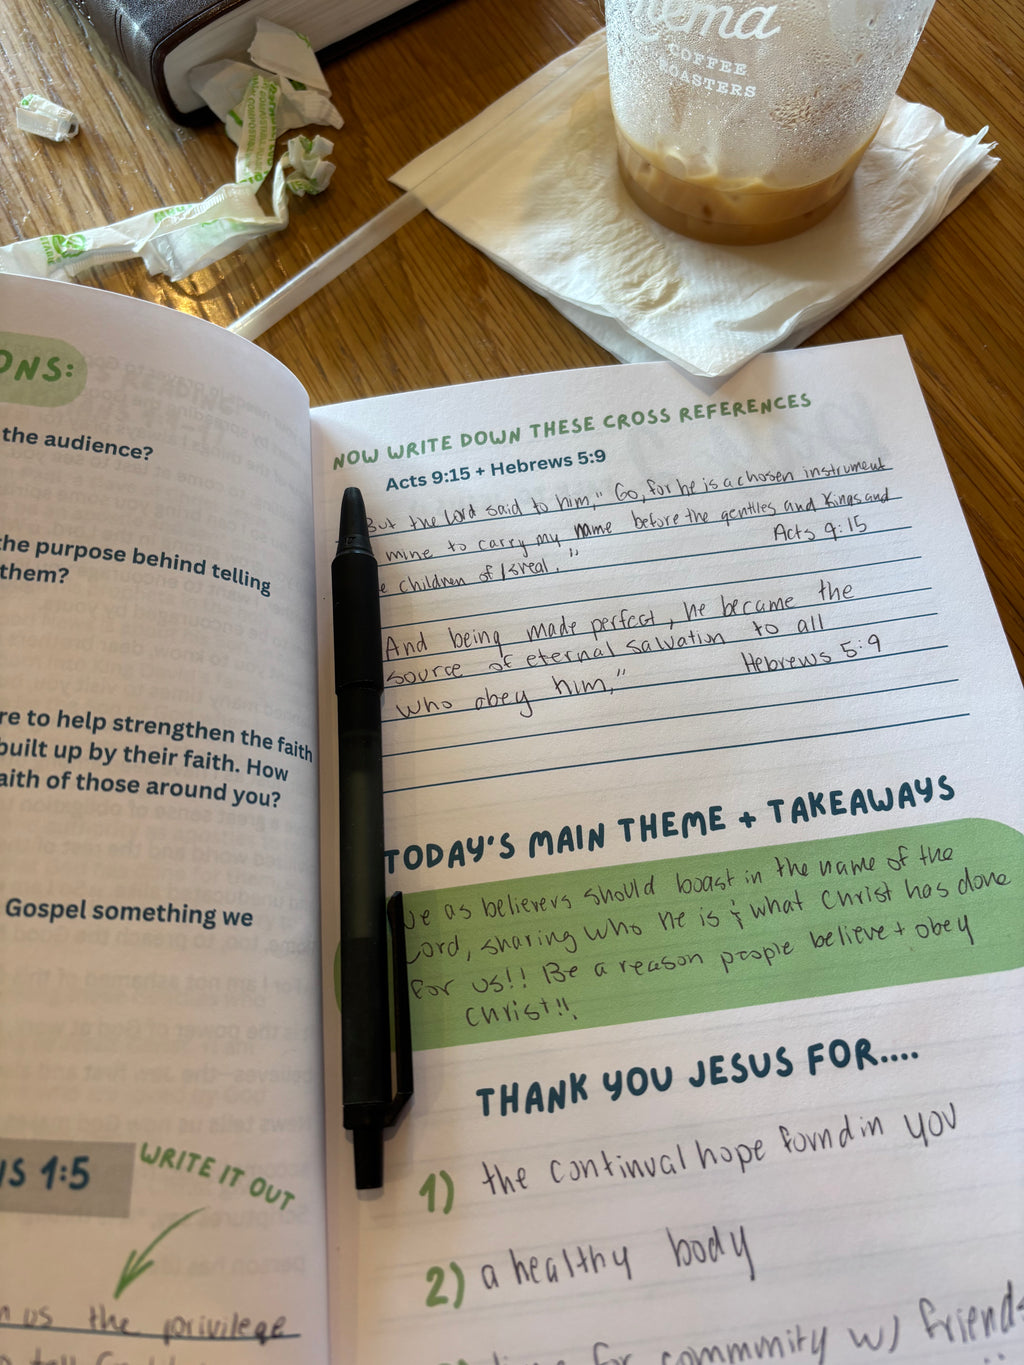 COFFEE
ROASTERS
ONS:
the audience?
the purpose behind telling
them?
re to help strengthen the faith
built up by their faith. How
aith of those around you?
Gospel something we
1:5
WRITE IT OUT
us the privilege
NOW WRITE DOWN THESE CROSS REFERENCES
Acts 9:15 + Hebrews 5:9
But the Lord said to him, "Go, for he is a chosen instrument
mine to carry my name before the gentiles and Kings and
e children of Isreal."
Acts 9:15
And being made perfect, he became the
source of eternal salvation to all
who obey him,"
Hebrews 5:9
TODAY'S MAIN THEME + TAKEAWAYS
we as believers should boast in the name of the
Lord, sharing who He is & what Christ has done
for us!! Be a reason people believe + obey
Christ!!
THANK YOU JESUS FOR....
1) the continual hope found in you
2) a healthy body
for community w/ friends